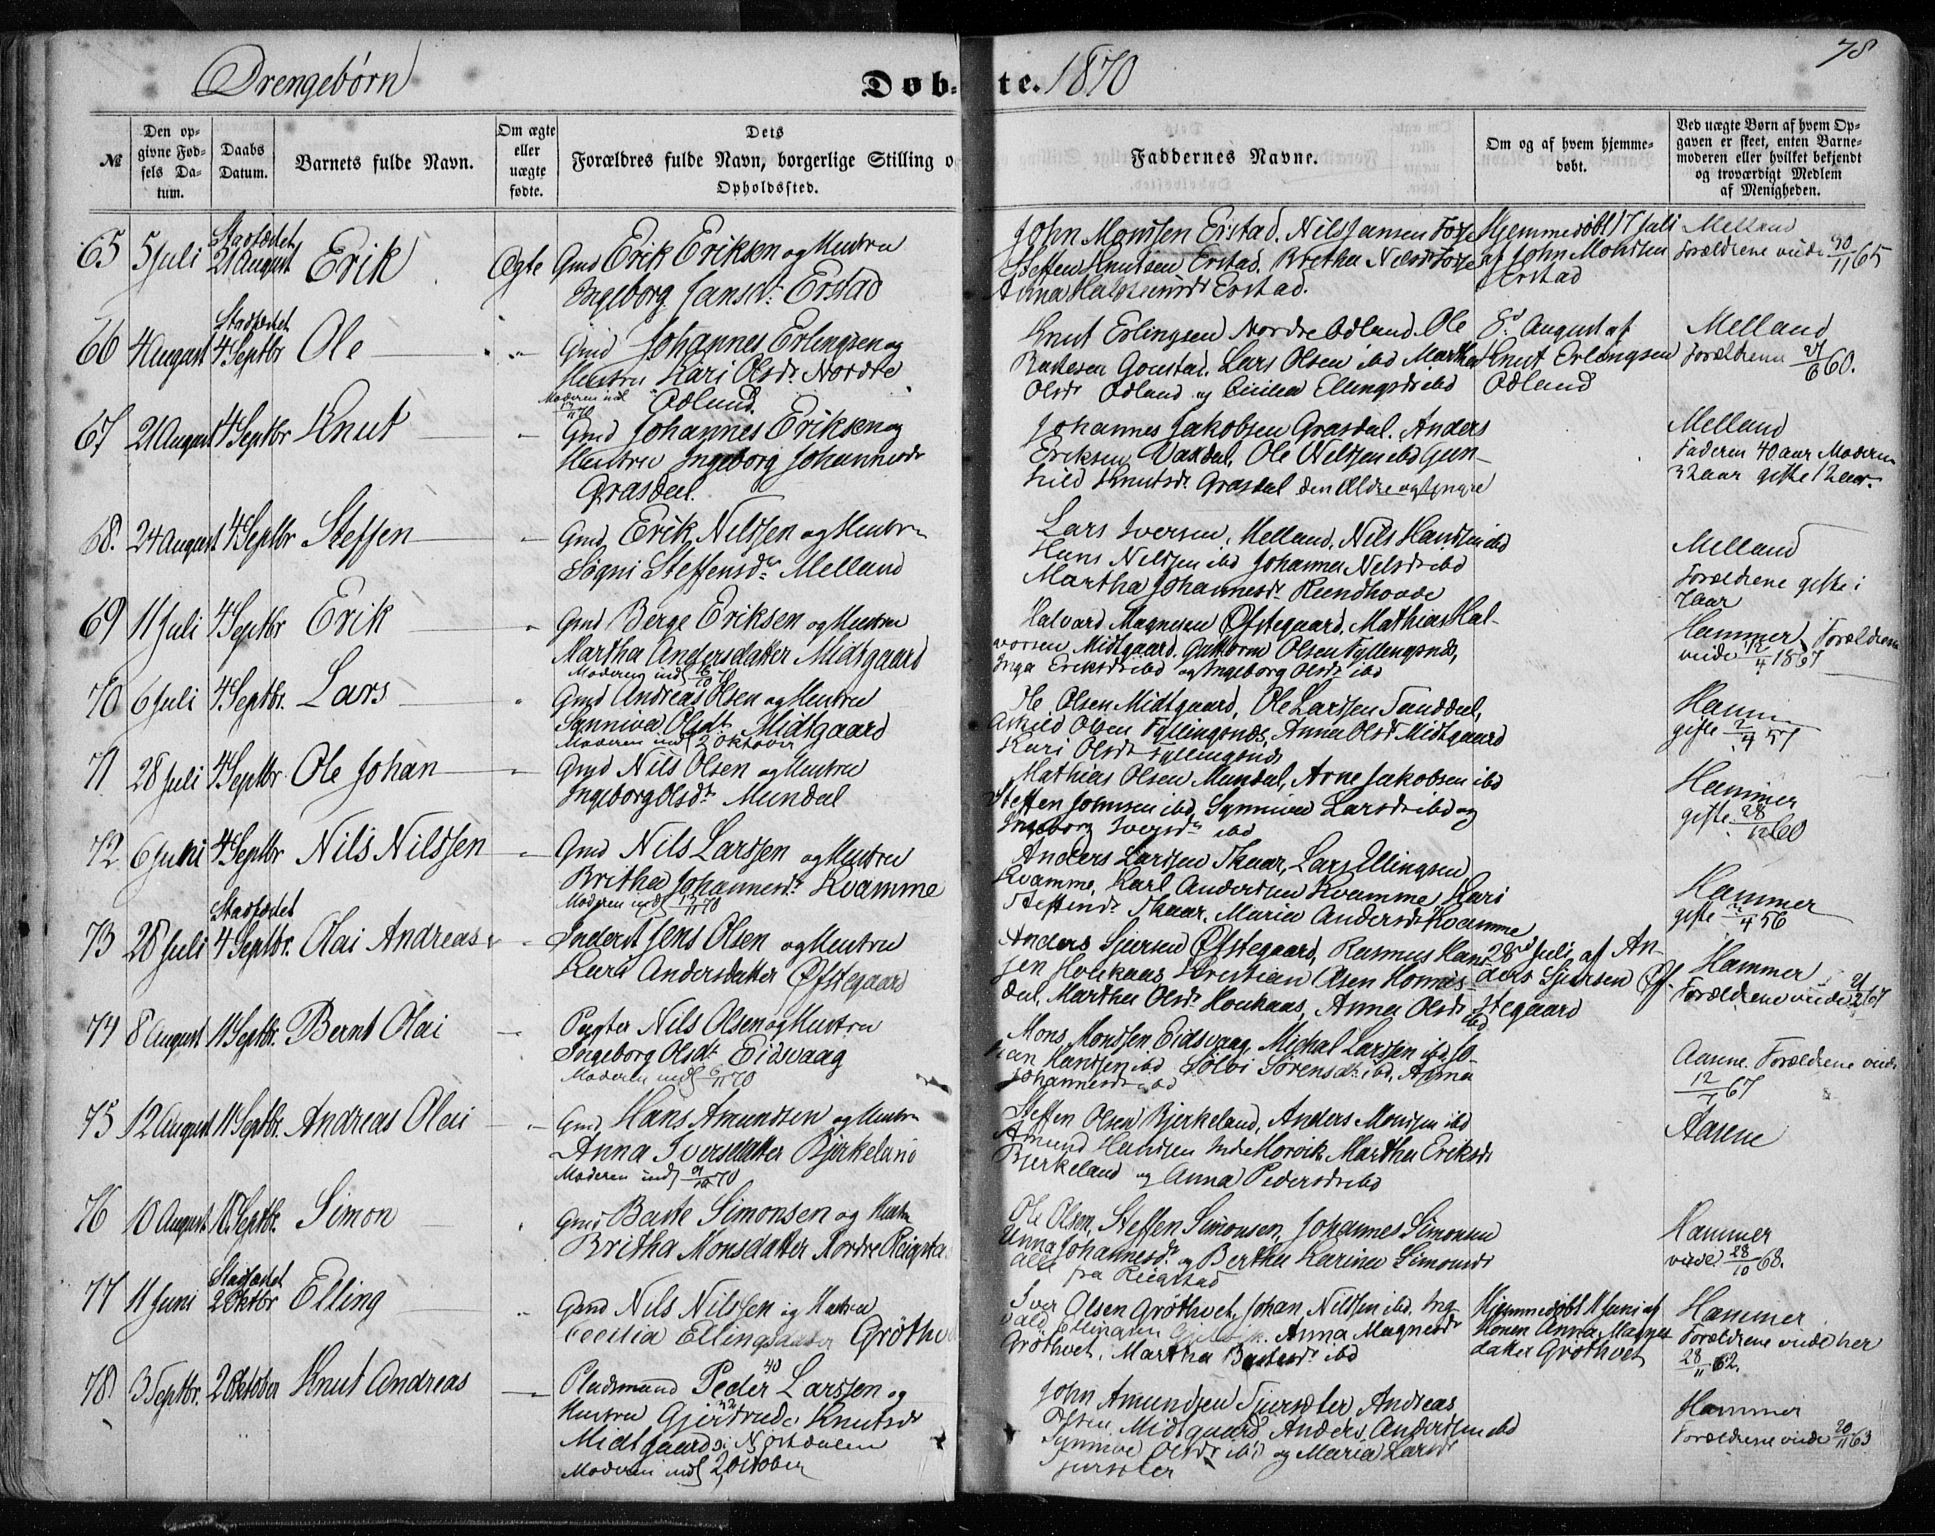 78
Drengebørn
Døb-te. 1870
№
Den opgivne Fødsels Datum.
Daabs Datum.
Barnets fulde Navn.
Om ægte eller uægte fødte.
Dets Forældres fulde Navn, borgerlige Stilling o
Opholdssted.
Faddernes Navne.
Om og af hvem hjemmedøbt.
Ved uægte Børn af hvem Opgaven er skeet, enten Barnemoderen eller hvilket bekjendt og troværdigt Medlem af Menigheden.
65 5 Juli Stadfæstet 21 August Erik Ægte Gmd Erik Eriksen og Hustru
Ingeborg Jansdr Erstad
John Monssen Erstad, Nils Jansen Fosse
Steffen Knutsen Erstad, Britha Nilsdr Fosse
Anna Halsteinsdr Erstad.
Hjemmedøbt 17 Juli
af John Monssen
Erstad
Melland
Forældrene viede 30/11 65
66 4 August Stadfæstet 4 Septbr Ole " Gmd Johannes Erlingsen og
Hustru Kari Olsdr Nordre
Moderen indl 13/11 70 Ådland.
Knut Erlingsen Nordre Ådland, Ole
Baktesen Gonstad, Lars Olsen ibd Martha
Olsdr Ådland og Cecilia Ellingsdr ibd
8d August af
Knut Erlingsen
Ådland
Melland
Forældrene 27/6 60.
67 21 August 4 Septbr Knut " Gmd Johannes Eriksen og
Hustru Ingeborg Johannesdr
Grasdal
Johannes Jakobsen Grasdal, Anders
Eriksen Vaxdal, Ole Nilssen ibd Gun-
hild Knutsdr Grasdal den Ældre og Yngre
Melland
Faderen 40 aar Moderen
32 aar gifte 12 aar.
68. 24 August 4 Septbr Steffen " Gmd Erik Nilssen og Hustru
Søgni Steffensdr Melland
Lars Iversen, Melland, Nils Hanssen ibd
Hans Nilssen ibd Johanna Nelsdr ibd
Martha Johannesdr Rundhovde
Melland
Forældrene gifte i
7 aar
69 11 Juli 4 Septbr Erik " Gmd Berge Eriksen og Hustru
Martha Andersdatter Midtgaard
Moderen indl 16/10 70
Halvard Magnesen Øfstegaard, Mathias Hal-
vorsen Midtgaard, Guttorm Olsen Fyllingsnæs,
Inga Eriksdr ibd og Ingeborg Olsdr ibd
Hammer Forældrene
viede 12/4 1867
70 6 Juli 4 Septbr. Lars " Gmd Andreas Olsen og Hustru
Synniva Olsdt Midtgaard
Moderen indl 2 Oktober
Ole Olsen Midtgaard, Ole Larssen Tanddal,
Askild Olsen Fyllingsnæs, Anna Olsdr Midtgaard
Kari Olsdr Fyllingsnæs
Hammer
gifte 2/4 57
71 28 Juli 4 Septbr. Ole Johan " Gmd Nils Olsen og Hustru
Ingeborg Olsdt Mundal
Mathias Olsen Mundal, Arne Jakobsen ibd
Steffen Johnsen ibd, Synniva Larsdr ibd og
Ingeborg Iversdr ibd
Hammer
gifte 28/12 60
72 6 Juni 4 Septbr Nils Nilssen " Gmd Nils Larssen og Hustru
Britha Johannesdt Kvamme
Moderen indl 13/11 70
Anders Larssen Skaar, Lars Ellingsen
Kvamme, Karl Anderssen Kvamme, Kari
Steffensdr Skaar, Maria Andersdr Kvamme
Hammer
gifte 4 56
73 28 Juli Stadfæstet 4 Septbr. Olai Andreas " Inderst Jens Olsen og Hustru
Kari Andersdatter Øfstegaard
Anders Sjursen Øfstegaard, Rasmus Hans-
sen Houkaas, Kristian Olsen Romas-
dal, Martha Olsdr Houkaas, Anna Olsdr ibd
28d Juli af An-
ders Sjursen Øf-
stegaard
Hammer
Forældrene viede 21/2 67
74 8 August 11 Septbr. Bernt Olai " Pagter Nils Olsen og Hustru
Ingeborg Olsdt Eidsvaag
Moderen indl 6/11 70
Mons Monssen Eidsvaag, Michal Larssen ibd, Jo-
han Hanssen ibd Sølvi Sørensdr ibd, Anna
Johannesdr ibd
Aasene. Forældrene viede
12/ 67
75 12 August 11 Septbr. Andreas Olai " Gmd Hans Amundsen og Hustru
Anna Iversdatter Bjerkeland
Moderen indl 70
Steffen Olsen Bjerkeland, Anders Monssen ibd
Amund Hanssen Indre Morvik Martha Eriksdr
Bjerkeland og Anna Pedersdr ibd
Aasene
76 10 August 18 Septbr. Simon " Gmd Baste Simonsen og Hustru
Britha Monsdatter Nordre Reigsta
Ole Olsen, Steffen Simonsen, Johannes Simonsen
Anna Johannesdr og Bertha Karina Simonsdr
alle fra Reigstad
Hammer
viede 28/10 68.
77 11 Juni Stadfæstet 2 Oktbr Elling " Gmd Nils Nilssen og Hustru
Cecilia Ellingsdatter Grøthve
Iver Olsen Grøthvet, Johan Nilssen ibd, Ing-
vald Ellingsen Anna Magnesdr
Grøthvet, Martha Bastesdr ibd
Hjemmedøbt 11 Juni af
Konen Anna Magnes
datter Grøthvet
Hammer
Forældrene viede her
28/11 62.
78 3 Septbr. 2 Oktober Knut Andreas " Pladsmand Peder 40 Larssen og
Hustru Gjertrude 32 Knutsdr
Midtgaard i Nordalen
Moderen indl 2 Oktober
John Amundsen Tjursæter Andreas
Olsen Midtgaard Anders Anderssen ibd
Synniva Olsdr ibd og Maria Larsdr
jursæter
Hammer
Forældrene viede 20/11 63